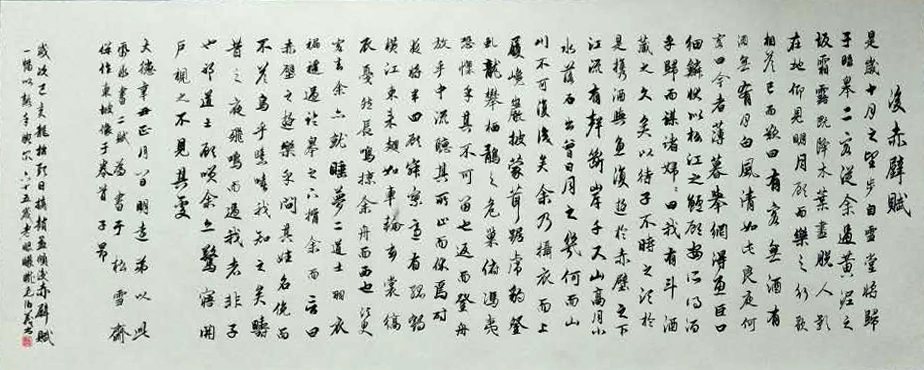 後赤壁賦
是歲十月之望步自雪堂將歸
于臨皋二客從余過黃泥之
坂霜露既降木葉盡脫人影
在地仰見明月顧而樂之行歌
相答已而歎曰有客無酒有
酒無肴月白風清如此良夜何
客曰今者薄暮舉網得魚巨口
細鱗狀似松江之鱸顧安所得酒
乎歸而謀諸婦婦曰我有斗酒
藏之久矣以待子不時之須於
是攜酒與魚復遊於赤壁之下
江流有聲斷岸千尺山高月小
水落石出曾日月之幾何而山
川不可復識矣余乃攝衣而上
履巉巖披蒙茸踞虎豹登
虬龍攀栖鶻之危巢俯馮夷
恐懍乎其不可留也返而登舟
放乎中流聽其所止而休焉時
夜將半四顧寂寥適有孤鶴
橫江東來翅如車輪玄裳縞
衣戛然長鳴掠余舟而西也須臾
客去余亦就睡夢二道士羽衣
過臨皋之下揖余而言曰
赤壁之遊樂乎問其姓名俛而
不答嗚乎噫嘻我知之矣疇
昔之夜飛鳴而過我者非子
也邪道士顧笑余亦驚寤開
戶視之不見其處
大德辛丑正月八日明遠弟以此
紙求書二賦為書于松雪齋
併作東坡像于卷首 子昂
歲次己亥 趙孟頫後赤壁賦
一幅以熟手腕六十五歲老眼